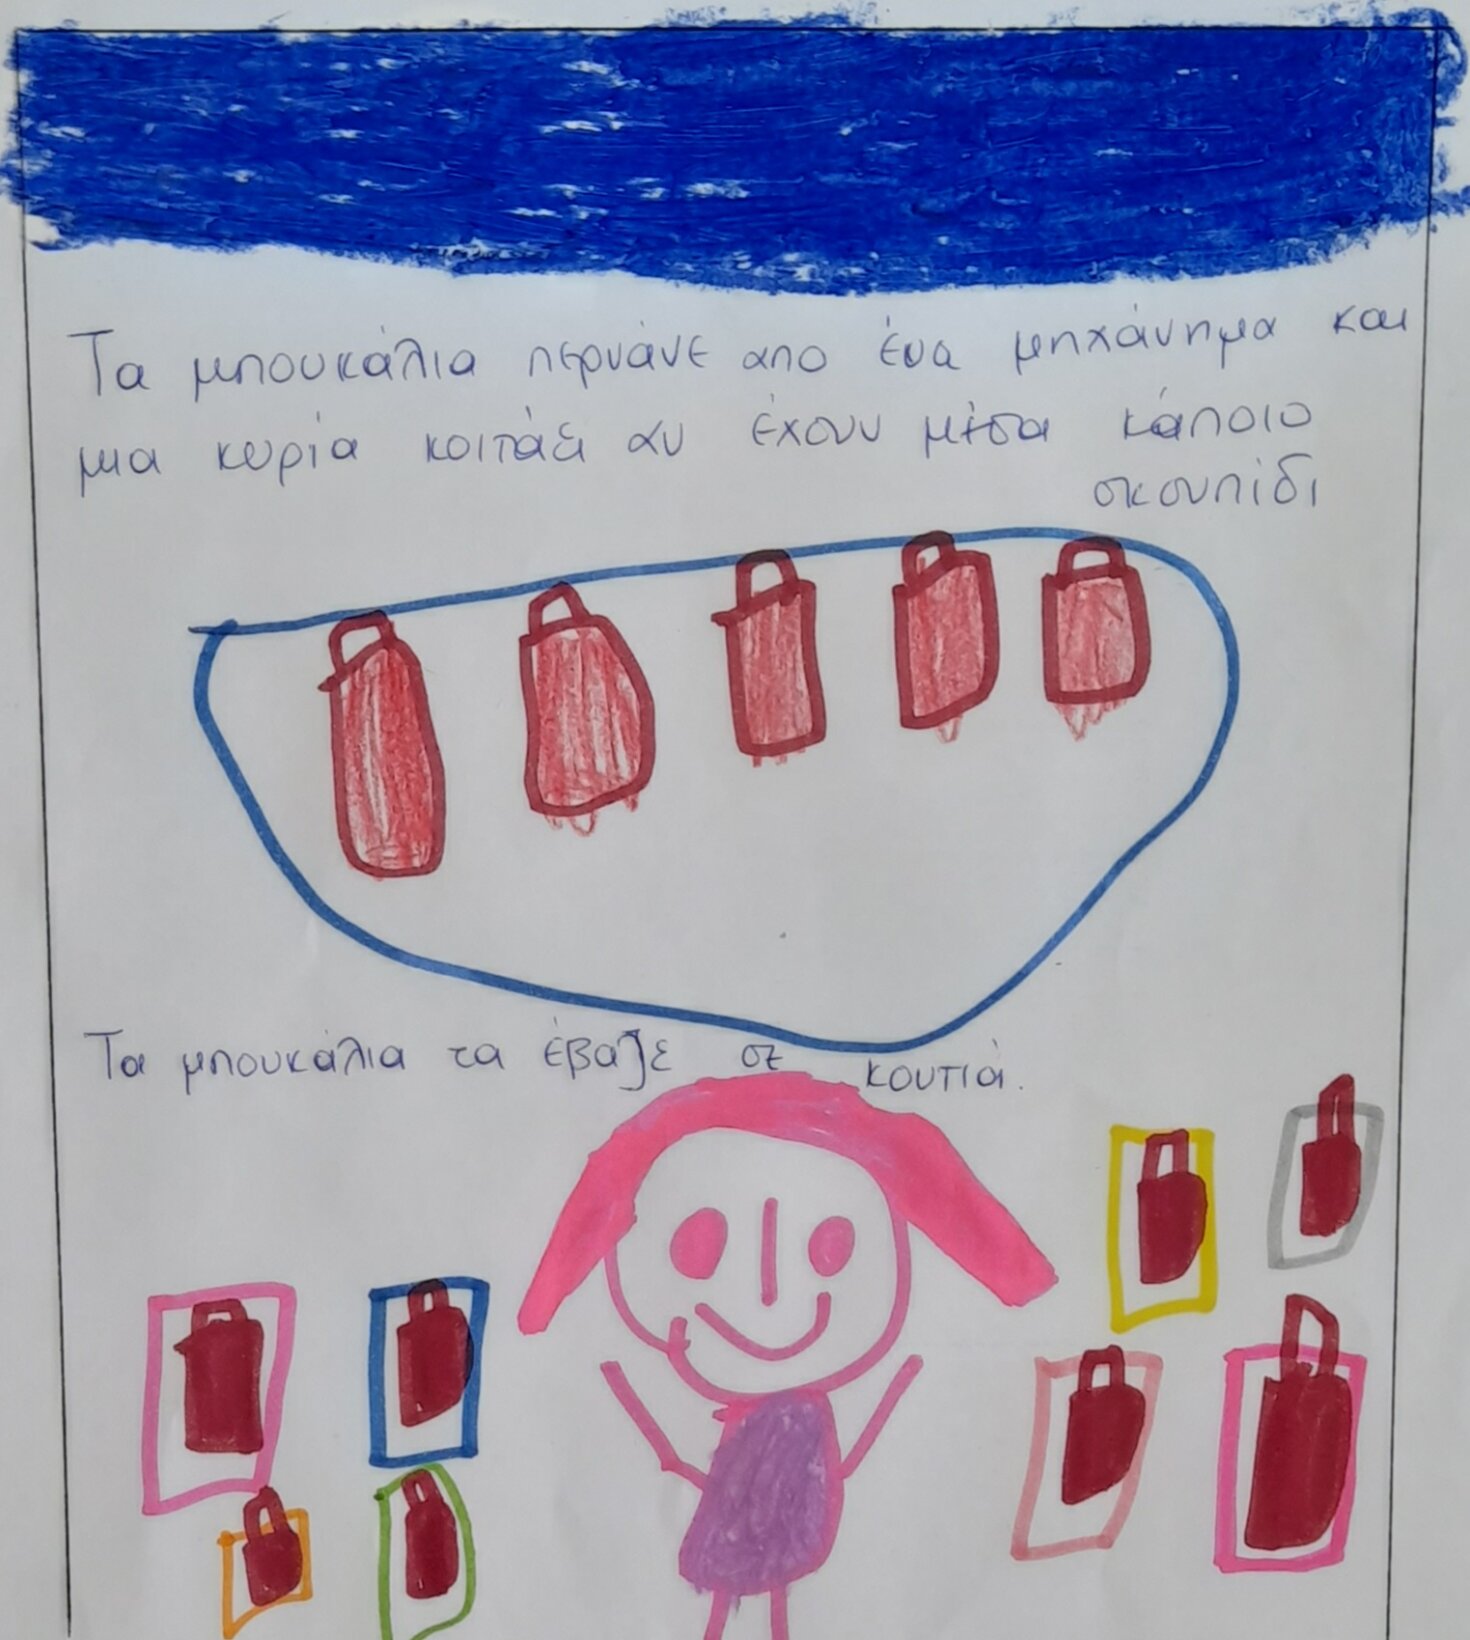 Τα μπουκάλια περνάνε απο ένα μηχάνημα και
μια κυρία κοιτάει αν έχουν μέσα κάποιο
σκουπίδι
Τα μπουκάλια τα έβαζε σε κουτιά.